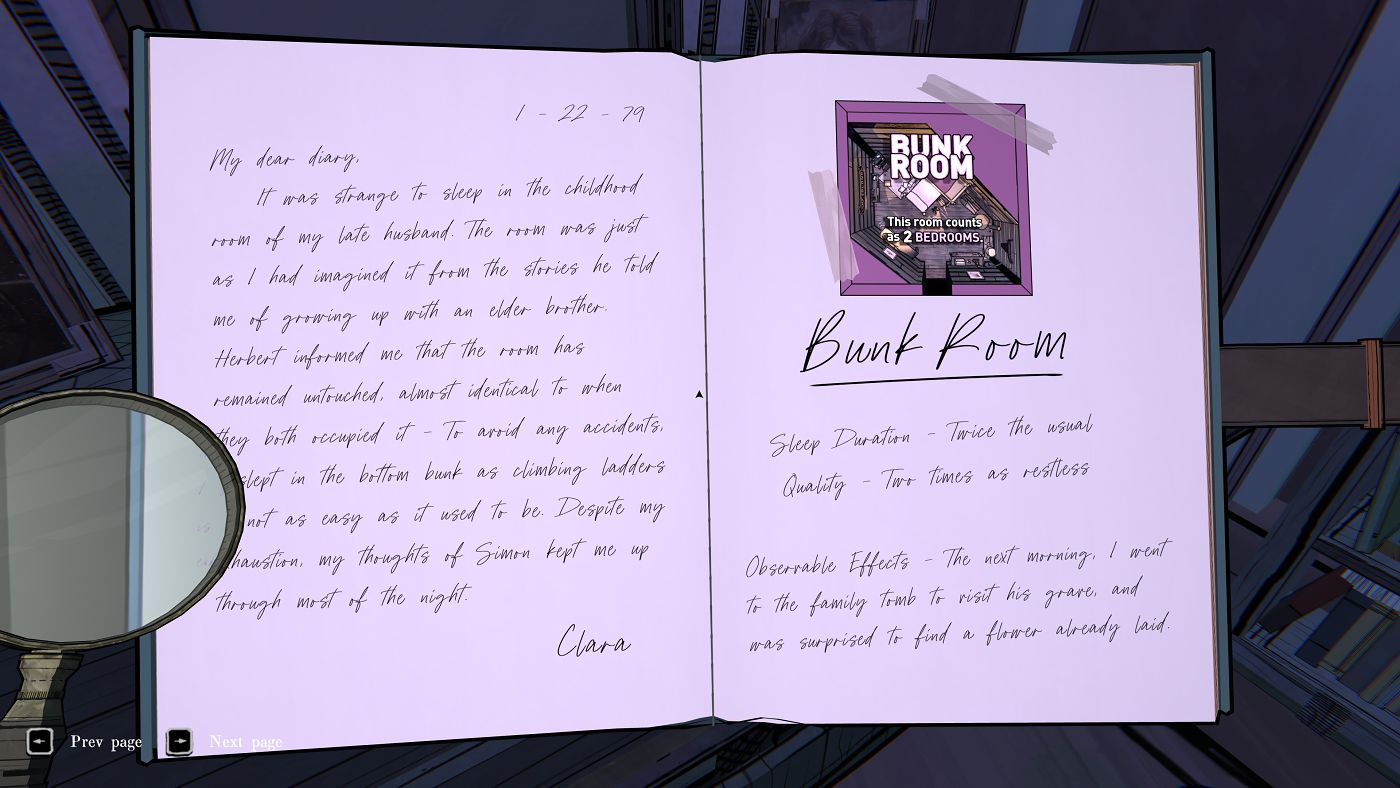 1 - 22 - 79
My dear diary,
It was strange to sleep in the childhood
room of my late husband. The room was just
as I had imagined it from the stories he told
me of growing up with an elder brother.
Herbert informed me that the room has
remained untouched, almost identical to when
they both occupied it - To avoid any accidents,
I slept in the bottom bunk as climbing ladders
is not as easy as it used to be. Despite my
exhaustion, my thoughts of Simon kept me up
through most of the night.
Clara
BUNK
ROOM
This room counts
as 2 BEDROOMS.
Bunk Room
Sleep Duration - Twice the usual
Quality - Two times as restless
Observable Effects - The next morning, I went
to the family tomb to visit his grave, and
was surprised to find a flower already laid.
Prev page
Next page